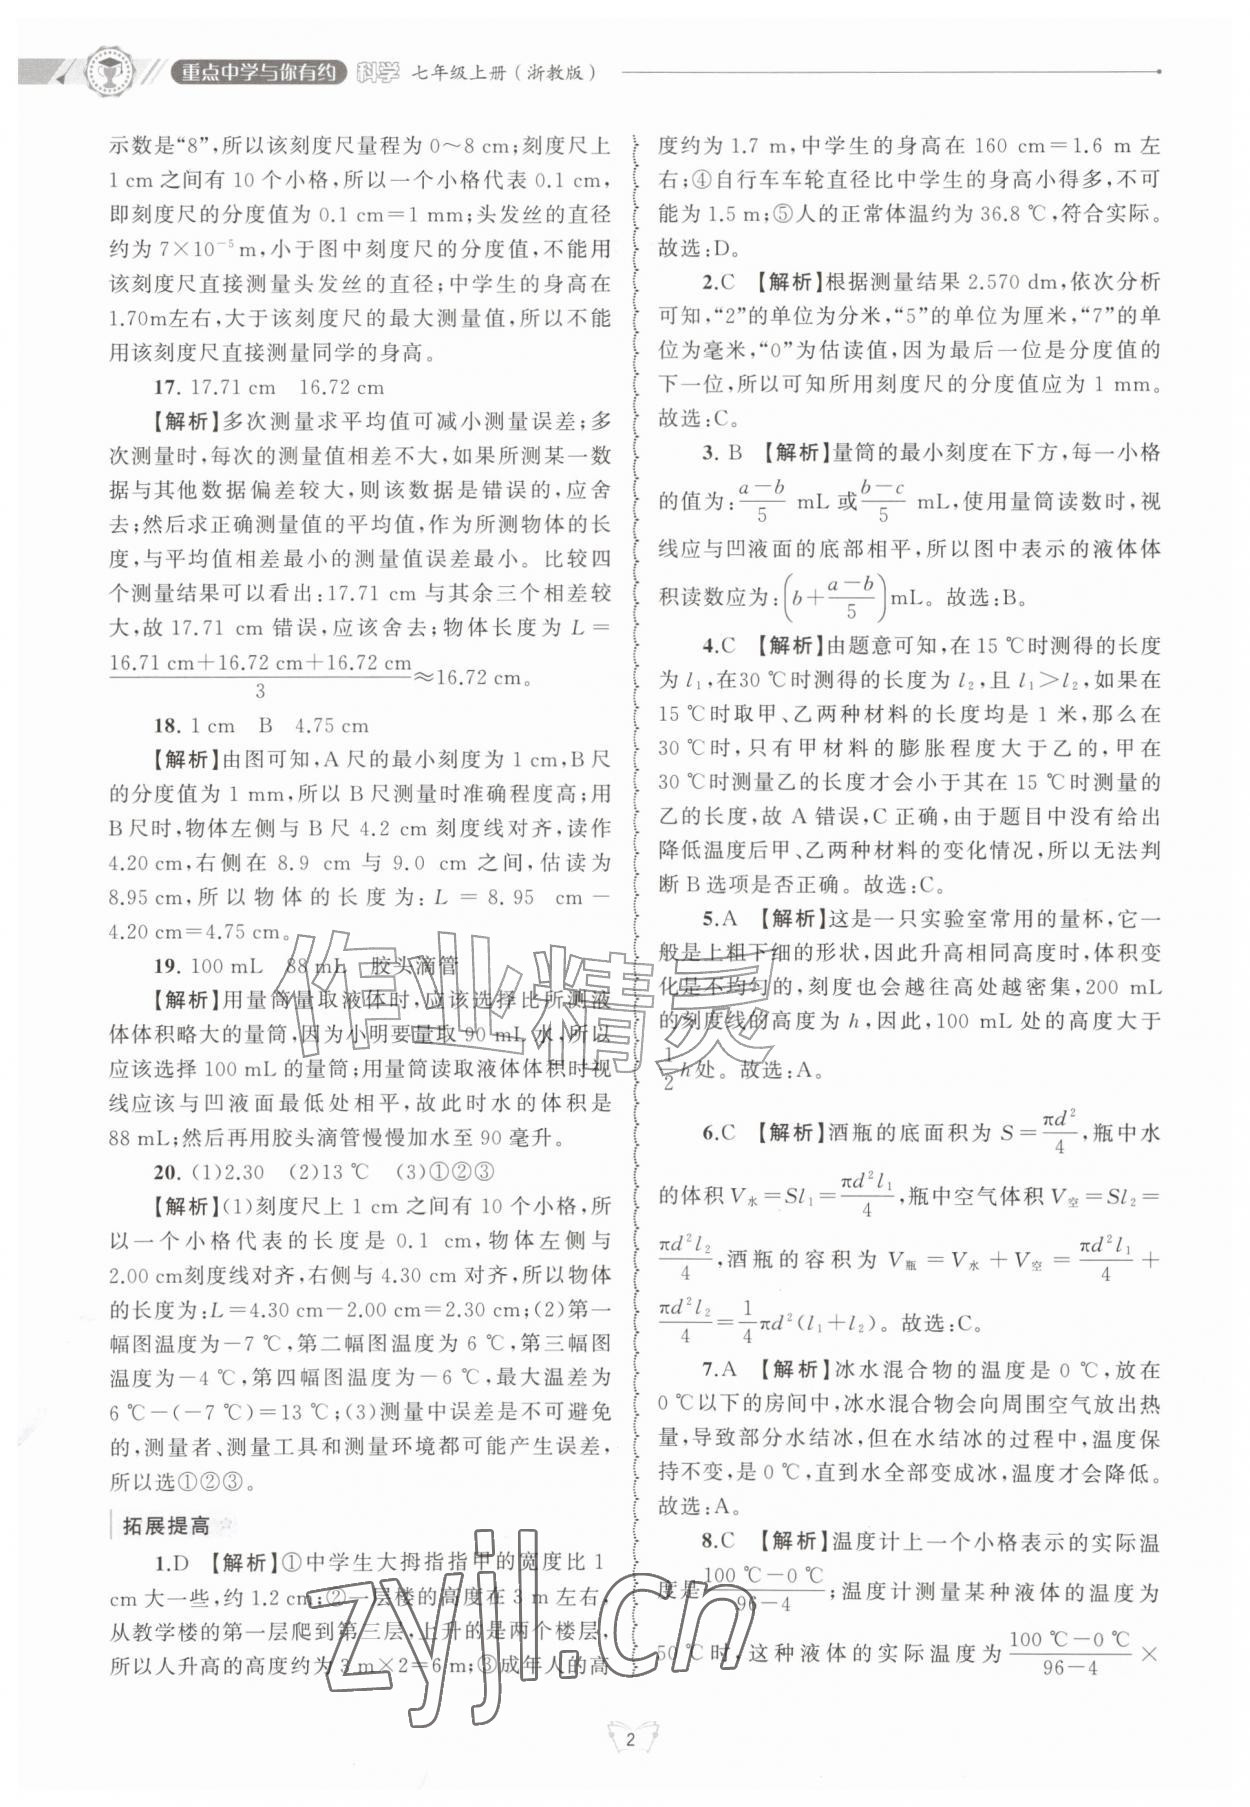 重点中学与你有约 科学 七年级上册(浙教版)
示数是“8”,所以该刻度尺量程为 0～8 cm;刻度尺上
1 cm 之间有 10 个小格,所以一个小格代表 0.1 cm,
即刻度尺的分度值为 0.1 cm=1 mm;头发丝的直径
约为 7×10⁻⁵m,小于图中刻度尺的分度值,不能用
该刻度尺直接测量头发丝的直径;中学生的身高在
1.70m左右,大于该刻度尺的最大测量值,所以不能
用该刻度尺直接测量同学的身高。
17. 17.71 cm 16.72 cm
【解析】多次测量求平均值可减小测量误差;多
次测量时,每次的测量值相差不大,如果所测某一数
据与其他数据偏差较大,则该数据是错误的,应舍
去;然后求正确测量值的平均值,作为所测物体的长
度,与平均值相差最小的测量值误差最小。比较四
个测量结果可以看出:17.71 cm 与其余三个相差较
大,故 17.71 cm 错误,应该舍去;物体长度为 L=
(16.71 cm+16.72 cm+16.72 cm)/3≈16.72 cm。
18. 1 cm B 4.75 cm
【解析】由图可知,A 尺的最小刻度为 1 cm,B 尺
的分度值为 1 mm,所以 B 尺测量时准确程度高;用
B尺时,物体左侧与 B 尺 4.2 cm 刻度线对齐,读作
4.20 cm,右侧在 8.9 cm 与 9.0 cm 之间,估读为
8.95 cm,所以物体的长度为:L = 8.95 cm −
4.20 cm=4.75 cm。
19. 100 mL 88 mL 胶头滴管
【解析】用量筒量取液体时,应该选择比所测液
体体积略大的量筒,因为小明要量取 90 mL 水,所以
应该选择 100 mL 的量筒;用量筒读取液体体积时视
线应该与凹液面最低处相平,故此时水的体积是
88 mL;然后再用胶头滴管慢慢加水至 90 毫升。
20. (1)2.30 (2)13 ℃ (3)①②③
【解析】(1)刻度尺上 1 cm 之间有 10 个小格,所
以一个小格代表的长度是 0.1 cm,物体左侧与
2.00 cm刻度线对齐,右侧与 4.30 cm 对齐,所以物体
的长度为:L=4.30 cm−2.00 cm=2.30 cm;(2)第一
幅图温度为−7 ℃,第二幅图温度为 6 ℃,第三幅图
温度为−4 ℃,第四幅图温度为 0 ℃,最大温差为
6 ℃−(−7 ℃)=13 ℃;(3)测量中误差是不可避免
的,测量者、测量工具和测量环境都可能产生误差,
所以选①②③。
拓展提高
1.D 【解析】①中学生大拇指指甲的宽度比 1
cm 大一些,约 1.2 cm;②一层楼的高度在 3 m 左右,
从教学楼的第一层爬到第三层,上升的是两个楼层,
所以人升高的高度约为 3 m×2=6 m;③成年人的高
度约为 1.7 m,中学生的身高在 160 cm=1.6 m 左
右;④自行车车轮直径比中学生的身高小得多,不可
能为 1.5 m;⑤人的正常体温约为 36.8 ℃,符合实际。
故选:D。
2.C 【解析】根据测量结果 2.570 dm,依次分析
可知,“2”的单位为分米,“5”的单位为厘米,“7”的单
位为毫米,“0”为估读值,因为最后一位是分度值的
下一位,所以可知所用刻度尺的分度值应为 1 mm。
故选:C。
3. B 【解析】量筒的最小刻度在下方,每一小格
的值为:(a−b)/5 mL 或(b−c)/5 mL,使用量筒读数时,视
线应与凹液面的底部相平,所以图中表示的液体体
积读数应为:(b+(a−b)/5)mL。故选:B。
4.C 【解析】由题意可知,在 15 ℃时测得的长度
为 l₁,在30 ℃时测得的长度为 l₂,且 l₁>l₂,如果在
15 ℃时取甲、乙两种材料的长度均是 1 米,那么在
30 ℃时,只有甲材料的膨胀程度大于乙的,甲在
30 ℃时测量乙的长度才会小于其在 15 ℃时测量的
乙的长度,故 A 错误,C 正确,由于题目中没有给出
降低温度后甲、乙两种材料的变化情况,所以无法判
断 B 选项是否正确。故选:C。
5.A 【解析】这是一只实验室常用的量杯,它一
般是上粗下细的形状,因此升高相同高度时,体积变
化是不均匀的,刻度也会越往高处越密集,200 mL
的刻度线的高度为 h,因此,100 mL 处的高度大于
1/2 h处。故选:A。
6.C 【解析】酒瓶的底面积为 S=πd²/4,瓶中水
的体积 V水=Sl₁=πd²l₁/4,瓶中空气体积 V空=Sl₂=
πd²l₂/4,酒瓶的容积为 V瓶=V水+V空=πd²l₁/4+
πd²l₂/4=1/4πd²(l₁+l₂)。故选:C。
7.A 【解析】冰水混合物的温度是 0 ℃,放在
0 ℃以下的房间中,冰水混合物会向周围空气放出热
量,导致部分水结冰,但在水结冰的过程中,温度保
持不变,是 0 ℃,直到水全部变成冰,温度才会降低。
故选:A。
8.C 【解析】温度计上一个小格表示的实际温
度是(100 ℃−0 ℃)/(96−4);温度计测量某种液体的温度为
50 ℃时,这种液体的实际温度为(100 ℃−0 ℃)/(96−4)×
作业精灵
zyjl.cn
2